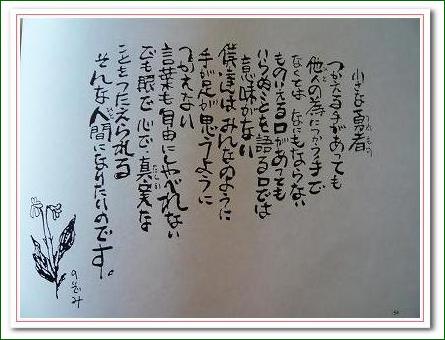 小さな勇者
つかえる手があっても
他人の為につかう手で
なくては なにもならない
ものいえる口があっても
いらぬことを語る口では
意味がない
僕達は みんなのように
手が足が思うように
つかえない
言葉も自由にしゃべれない
でも眼で 心で、真実な
ことをつたえられる
そんな人間になりたいのです。
のぞみ